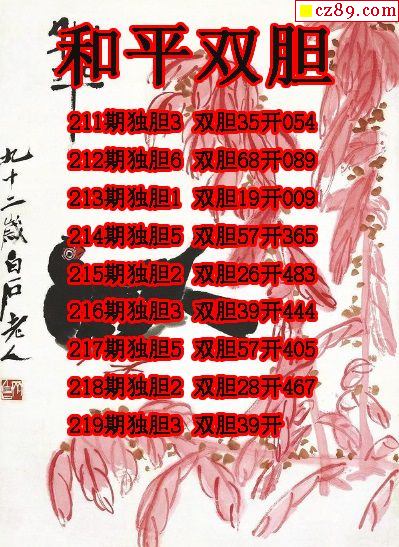 cz89.com
和平双胆
211期独胆3 双胆35开054
212期独胆6 双胆68开089
213期独胆1 双胆19开009
214期独胆5 双胆57开365
215期独胆2 双胆26开483
216期独胆3 双胆39开444
217期独胆5 双胆57开405
218期独胆2 双胆28开467
219期独胆3 双胆39开
九十二岁白石老人